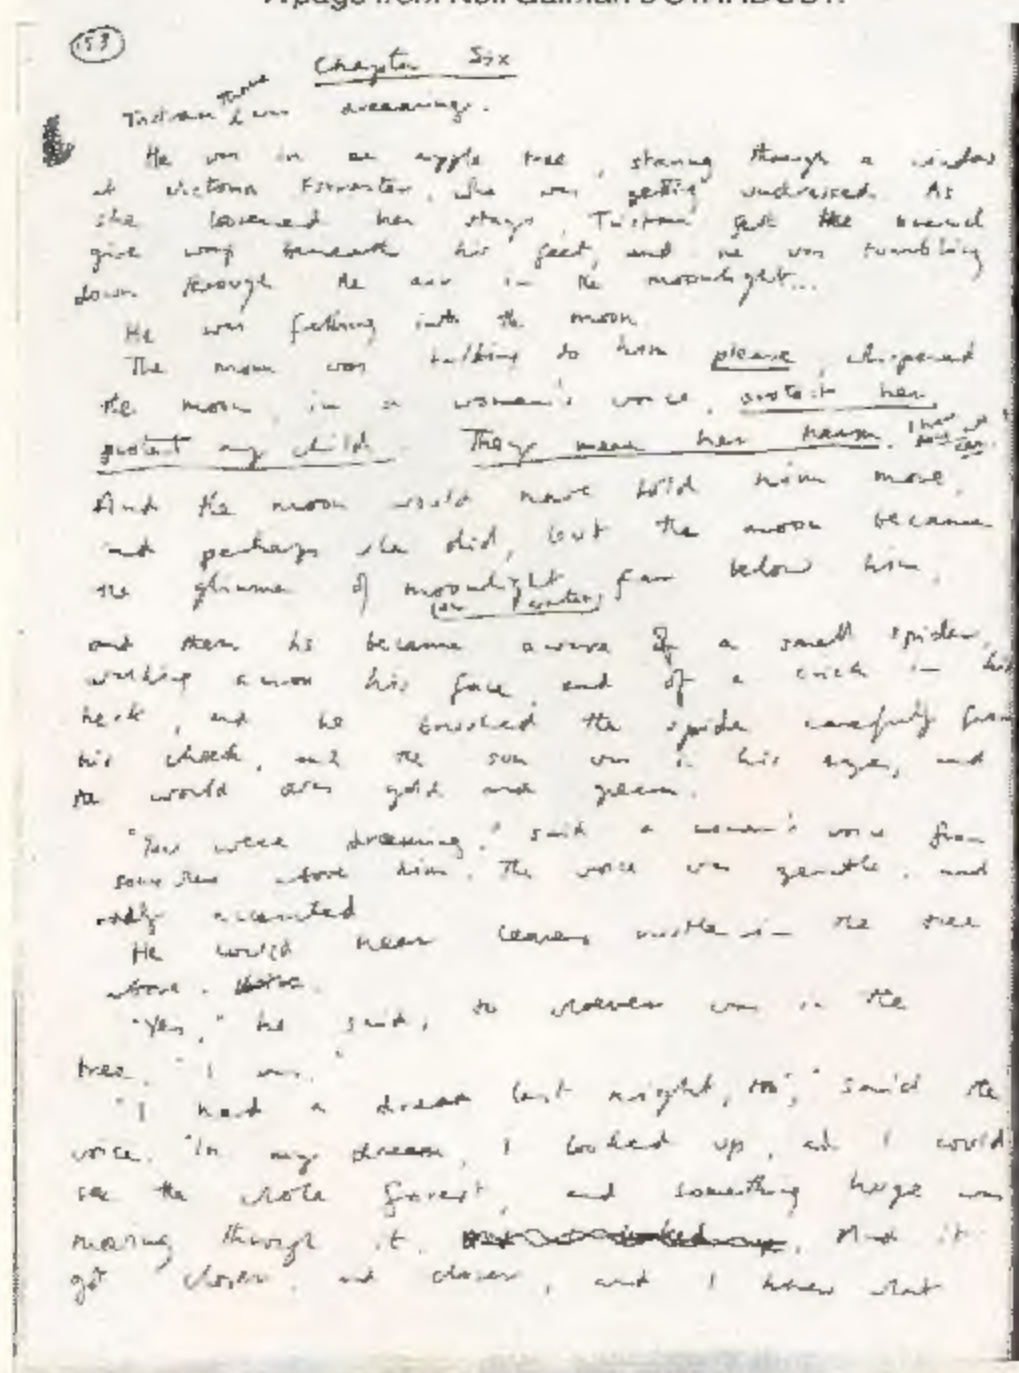 A page from Neil Gaiman's STARDUST.
153
Chapter Six
Tristran Thorne was dreaming.
He was in an apple tree, staring through a window
at Victoria Forrester, who was getting undressed. As
she loosened her stays, Tristran felt the branch
give way beneath his feet, and he was tumbling
down through the air in the moonlight...
He was falling into the moon.
The moon was talking to him please, whispered
the moon, in a woman's voice, protect her,
protect my child. They mean her harm.
And the moon would have told him more,
and perhaps she did, but the moon became
the glimmer of moonlight far below him,
on water
and then he became aware of a small spider,
walking across his face, and of a crick in his
neck, and he brushed the spider carefully from
his cheek, and the sun was in his eyes, and
the world was gold and green.
"You were dreaming," said a woman's voice from
somewhere above him. The voice was gentle, and
oddly accented.
He could hear leaves rustle in the tree
above.
"Yes," he said, to whoever was in the
tree, "I was."
"I had a dream last night, too," said the
voice. "In my dream, I looked up, and I could
see the whole forest, and something huge was
moving through it. And it
got closer, and closer, and I knew what